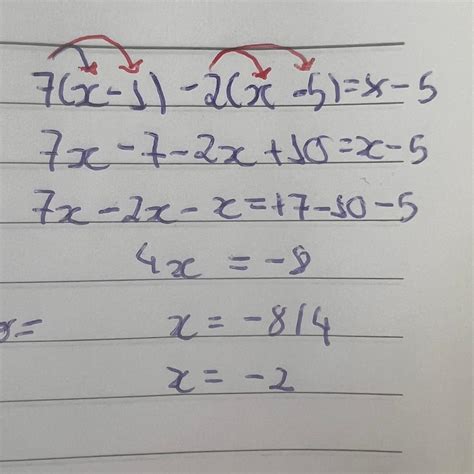 7(x-1)-2(x-5)=x-5
7x-7-2x+10=x-5
7x-2x-x=+7-10-5
4x=-8
x=-8/4
x=-2